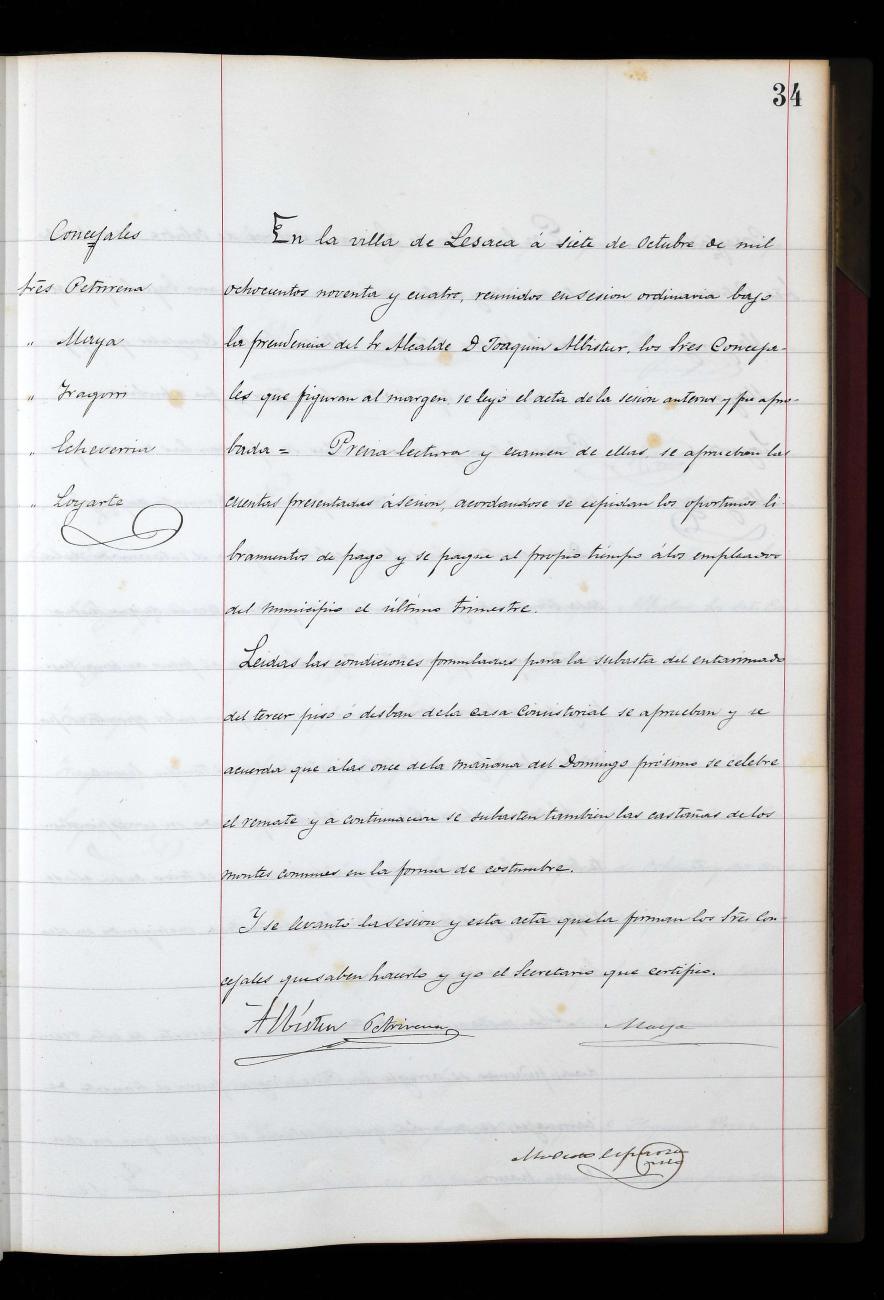 34
Concejales
Sres Petrirena
" Maya
" Iragorri
" Echeverria
" Loyarte
En la villa de Lesaca á siete de Octubre de mil
ochocientos noventa y cuatro, reunidos en sesion ordinaria bajo
la presidencia del Sr Alcalde D Joaquin Albistur, los Sres Conceja-
les que figuran al margen se leyó el acta de la sesion anterior y fue apro-
bada = Previa lectura y examen de ellas, se aprueban las
cuentas presentadas á sesion, acordandose se espidan los oportunos li-
bramientos de pago y se pague al propio tiempo á los empleados
del municipio el último trimestre.
Leidas las condiciones formuladas para la subasta del entarimado
del tercer piso ó desban de la casa Consistorial se aprueban y se
acuerda que á las once de la mañana del Domingo próximo se celebre
el remate y á continuacion se subasten tambien las castañas de los
montes comunes en la forma de costumbre.
Y se levantó la sesion y esta acta que la firman los Sres Con-
cejales que saben hacerlo y yo el Secretario que certifico.
Albistur Petrirena Maya
Modesto Espinosa